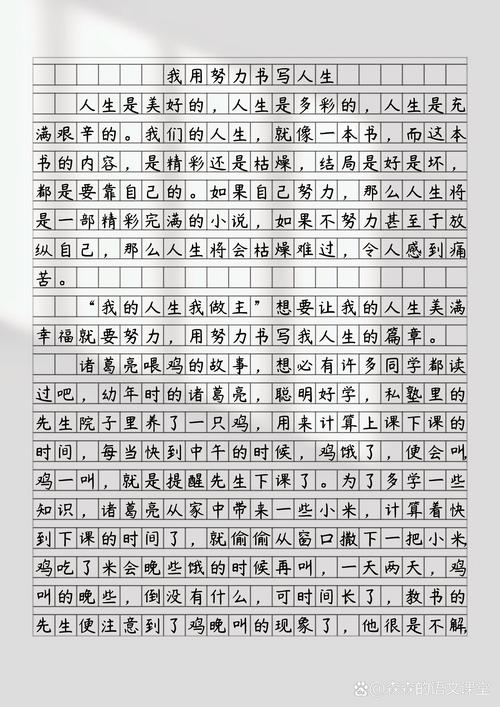 我用努力书写人生
人生是美好的，人生是多彩的，人生是充
满艰辛的。我们的人生，就像一本书，而这本
书的内容，是精彩还是枯燥，结局是好是坏，
都是要靠自己的。如果自己努力，那么人生将
是一部精彩完满的小说，如果不努力甚至于放
纵自己，那么人生将会枯燥难过，令人感到痛
苦。
“我的人生我做主”想要让我的人生美满
幸福就要努力，用努力书写我人生的篇章。
诸葛亮喂鸡的故事，想必有许多同学都读
过吧，幼年时的诸葛亮，聪明好学，私塾里的
先生院子里养了一只鸡，用来计算上课下课的
时间，每当快到中午的时候，鸡饿了，便会叫，
鸡一叫，就是提醒先生下课了。为了多学一些
知识，诸葛亮从家中带来一些小米，计算着快
到下课的时间了，就偷偷从窗口撒下一把小米，
鸡吃了米会晚些饿的时候再叫，一天两天，鸡
叫的晚些，倒没有什么，可时间长了，教书的
先生便注意到了鸡晚叫的现象了，他很是不解，
@森森的语文课堂